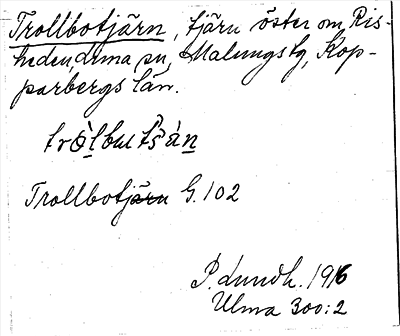 Trollbotjärn, tjärn öster om Ris-
heden, dma sn, Malungs tg, Kop-
parbergs län.
tròlbutsàn
Trollbotjärn G. 102
P. Lundh. 1916
Ulma 300:2